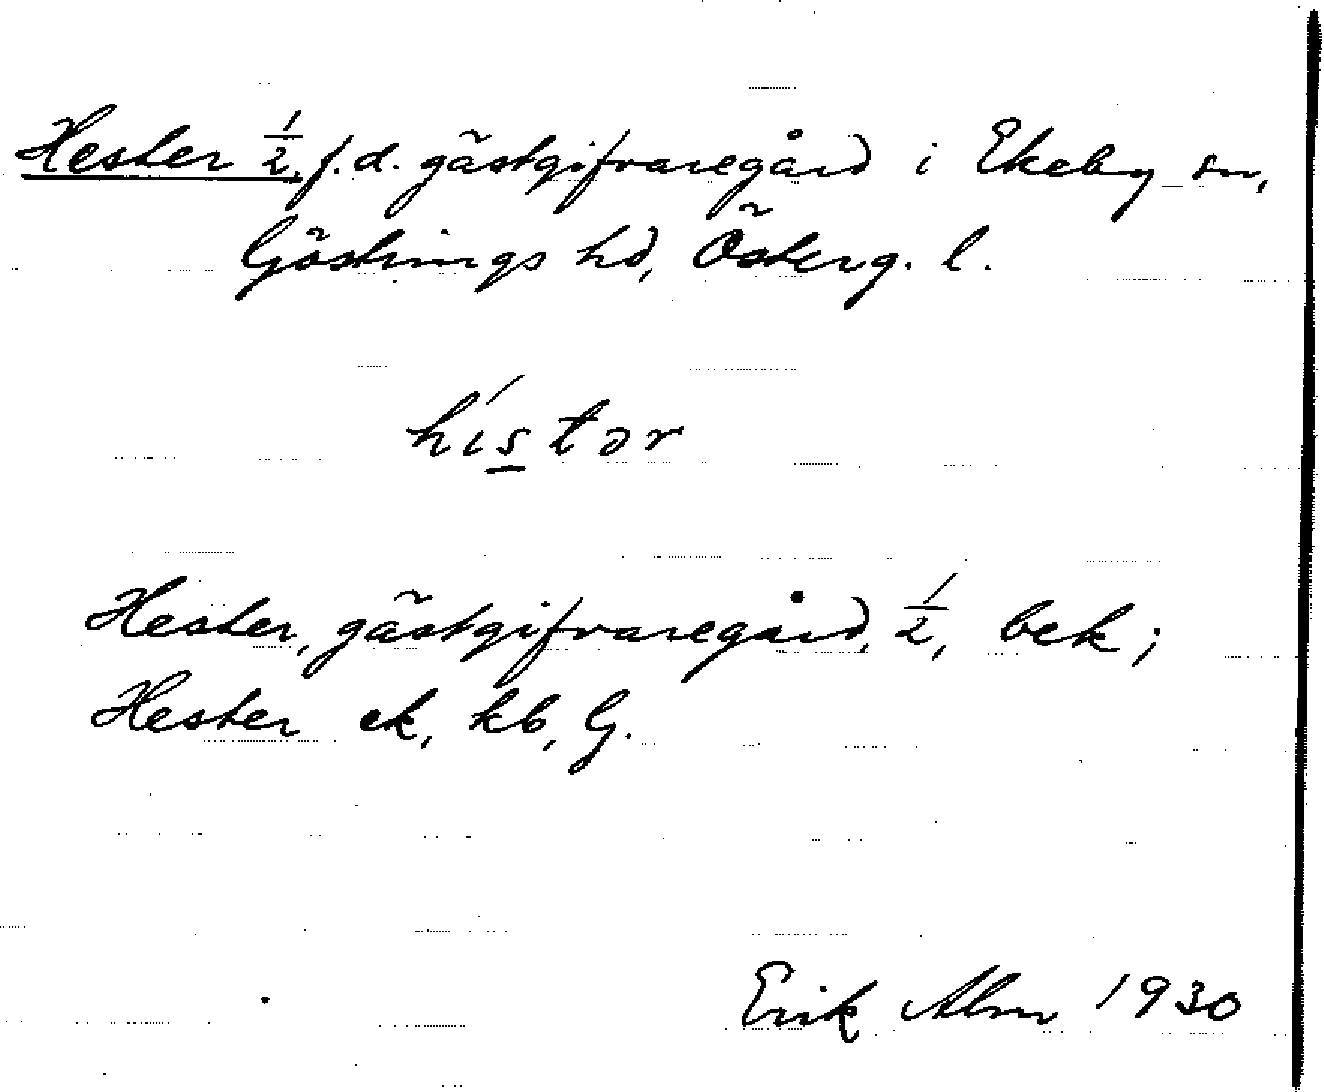 Hester 1/2, f.d. gästgifvaregård i Ekeby sn,
Göstrings hd, Österg. l.
hístər
Hester, gästgifvaregård, 1/2, bek;
Hester ek, kb, G.
Erik Alm 1930